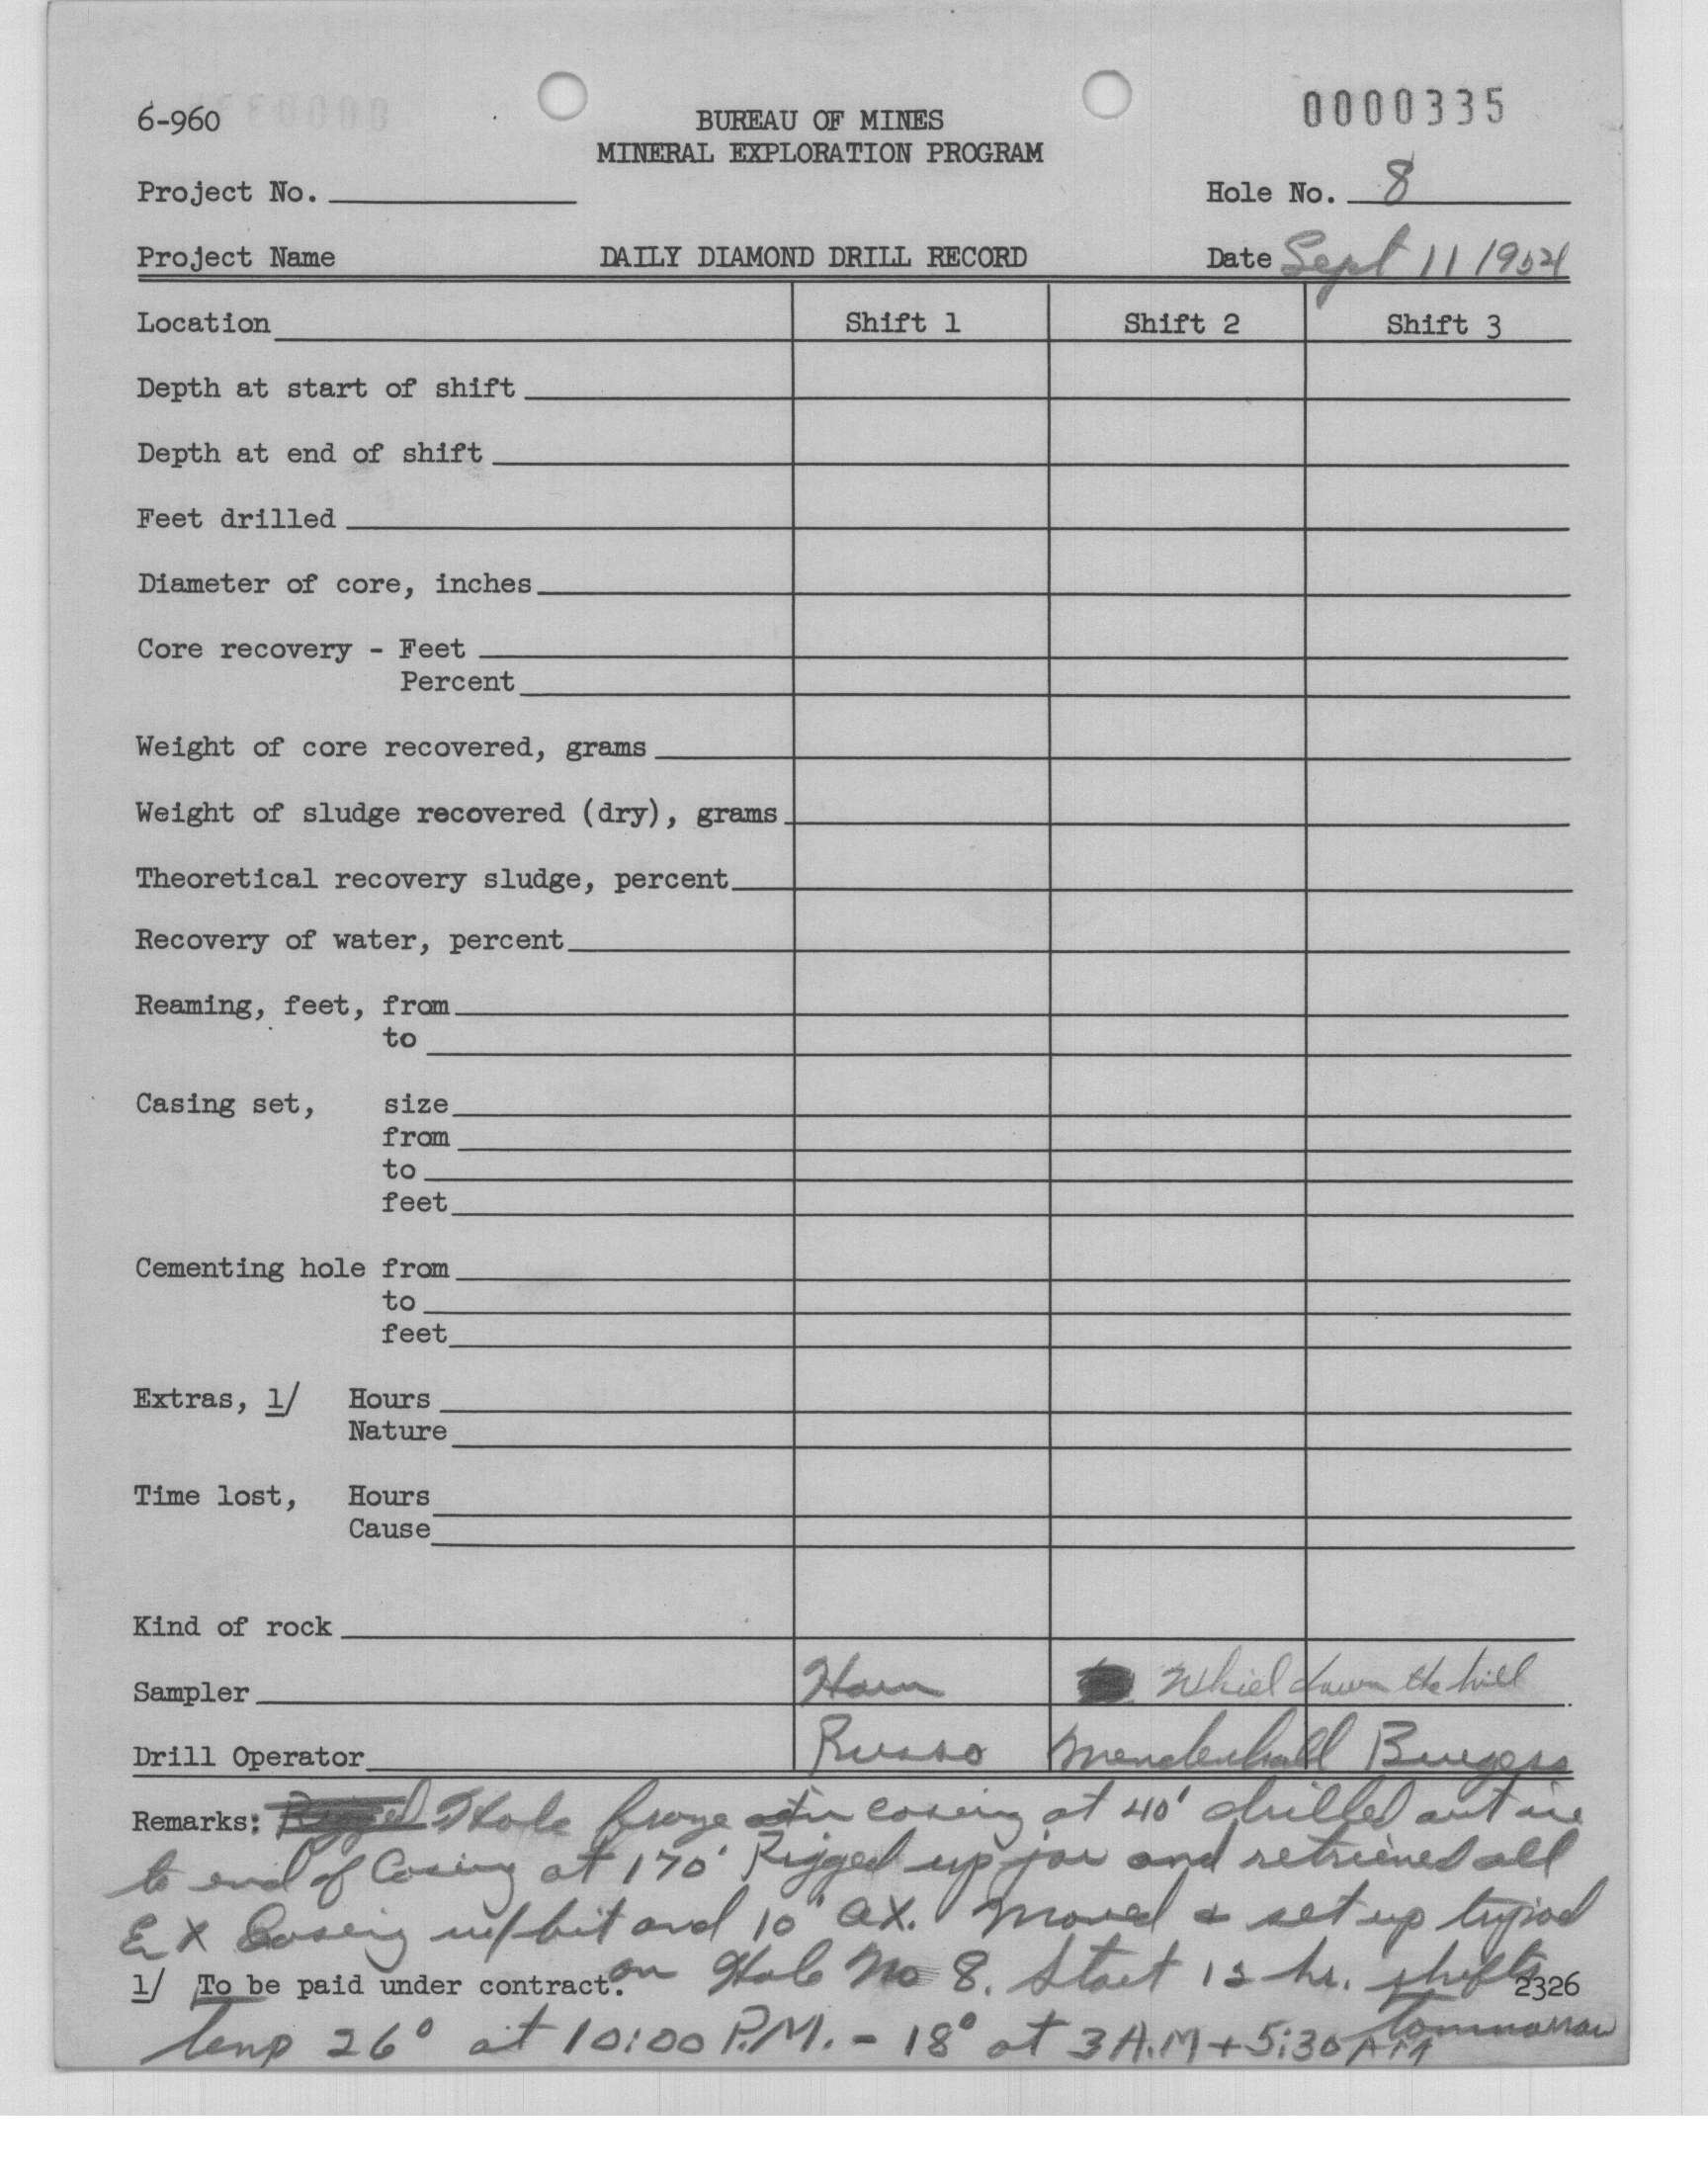 6-960
BUREAU OF MINES
0000335
MINERAL EXPLORATION PROGRAM
Project No.
Hole No. 8
Project Name DAILY DIAMOND DRILL RECORD Date Sept 11 1954
Location Shift 1 Shift 2 Shift 3
Depth at start of shift
Depth at end of shift
Feet drilled
Diameter of core, inches
Core recovery - Feet
Percent
Weight of core recovered, grams
Weight of sludge recovered (dry), grams
Theoretical recovery sludge, percent
Recovery of water, percent
Reaming, feet, from
to
Casing set, size
from
to
feet
Cementing hole from
to
feet
Extras, 1/ Hours
Nature
Time lost, Hours
Cause
Kind of rock
Sampler down the hill
Drill Operator Russo Mendenhall Burgess
Remarks: Hole froze in casing at 40' drilled out ice
to end of Casing at 170' Rigged up jar and retrieved all
EX Casing w/bit and 10" AX. Moved & set up tripod
on Hole No 8. Start 12 hr. shifts
1/ To be paid under contract. 2326
tommorrow
Temp 26° at 10:00 P.M. - 18° at 3 A.M + 5:30 AM